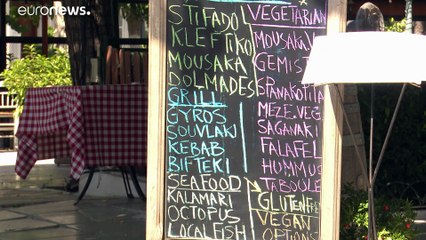 euronews.
STIFADO
KLEFTIKO
MOUSAKA
DOLMADES
GRILL
GYROS
SOUVLAKI
KEBAB
BIFTEKI
SEAFOOD
KALAMARI
OCTOPUS
LOCAL FISH
VEGETARIAN
MOUSAKA
GEMIST
SPANAKOTI
MEZE VEG
SAGANAKI
FALAFEL
HUMMUS
TABOULE
GLUTEN FREE
VEGAN
OPTIONS